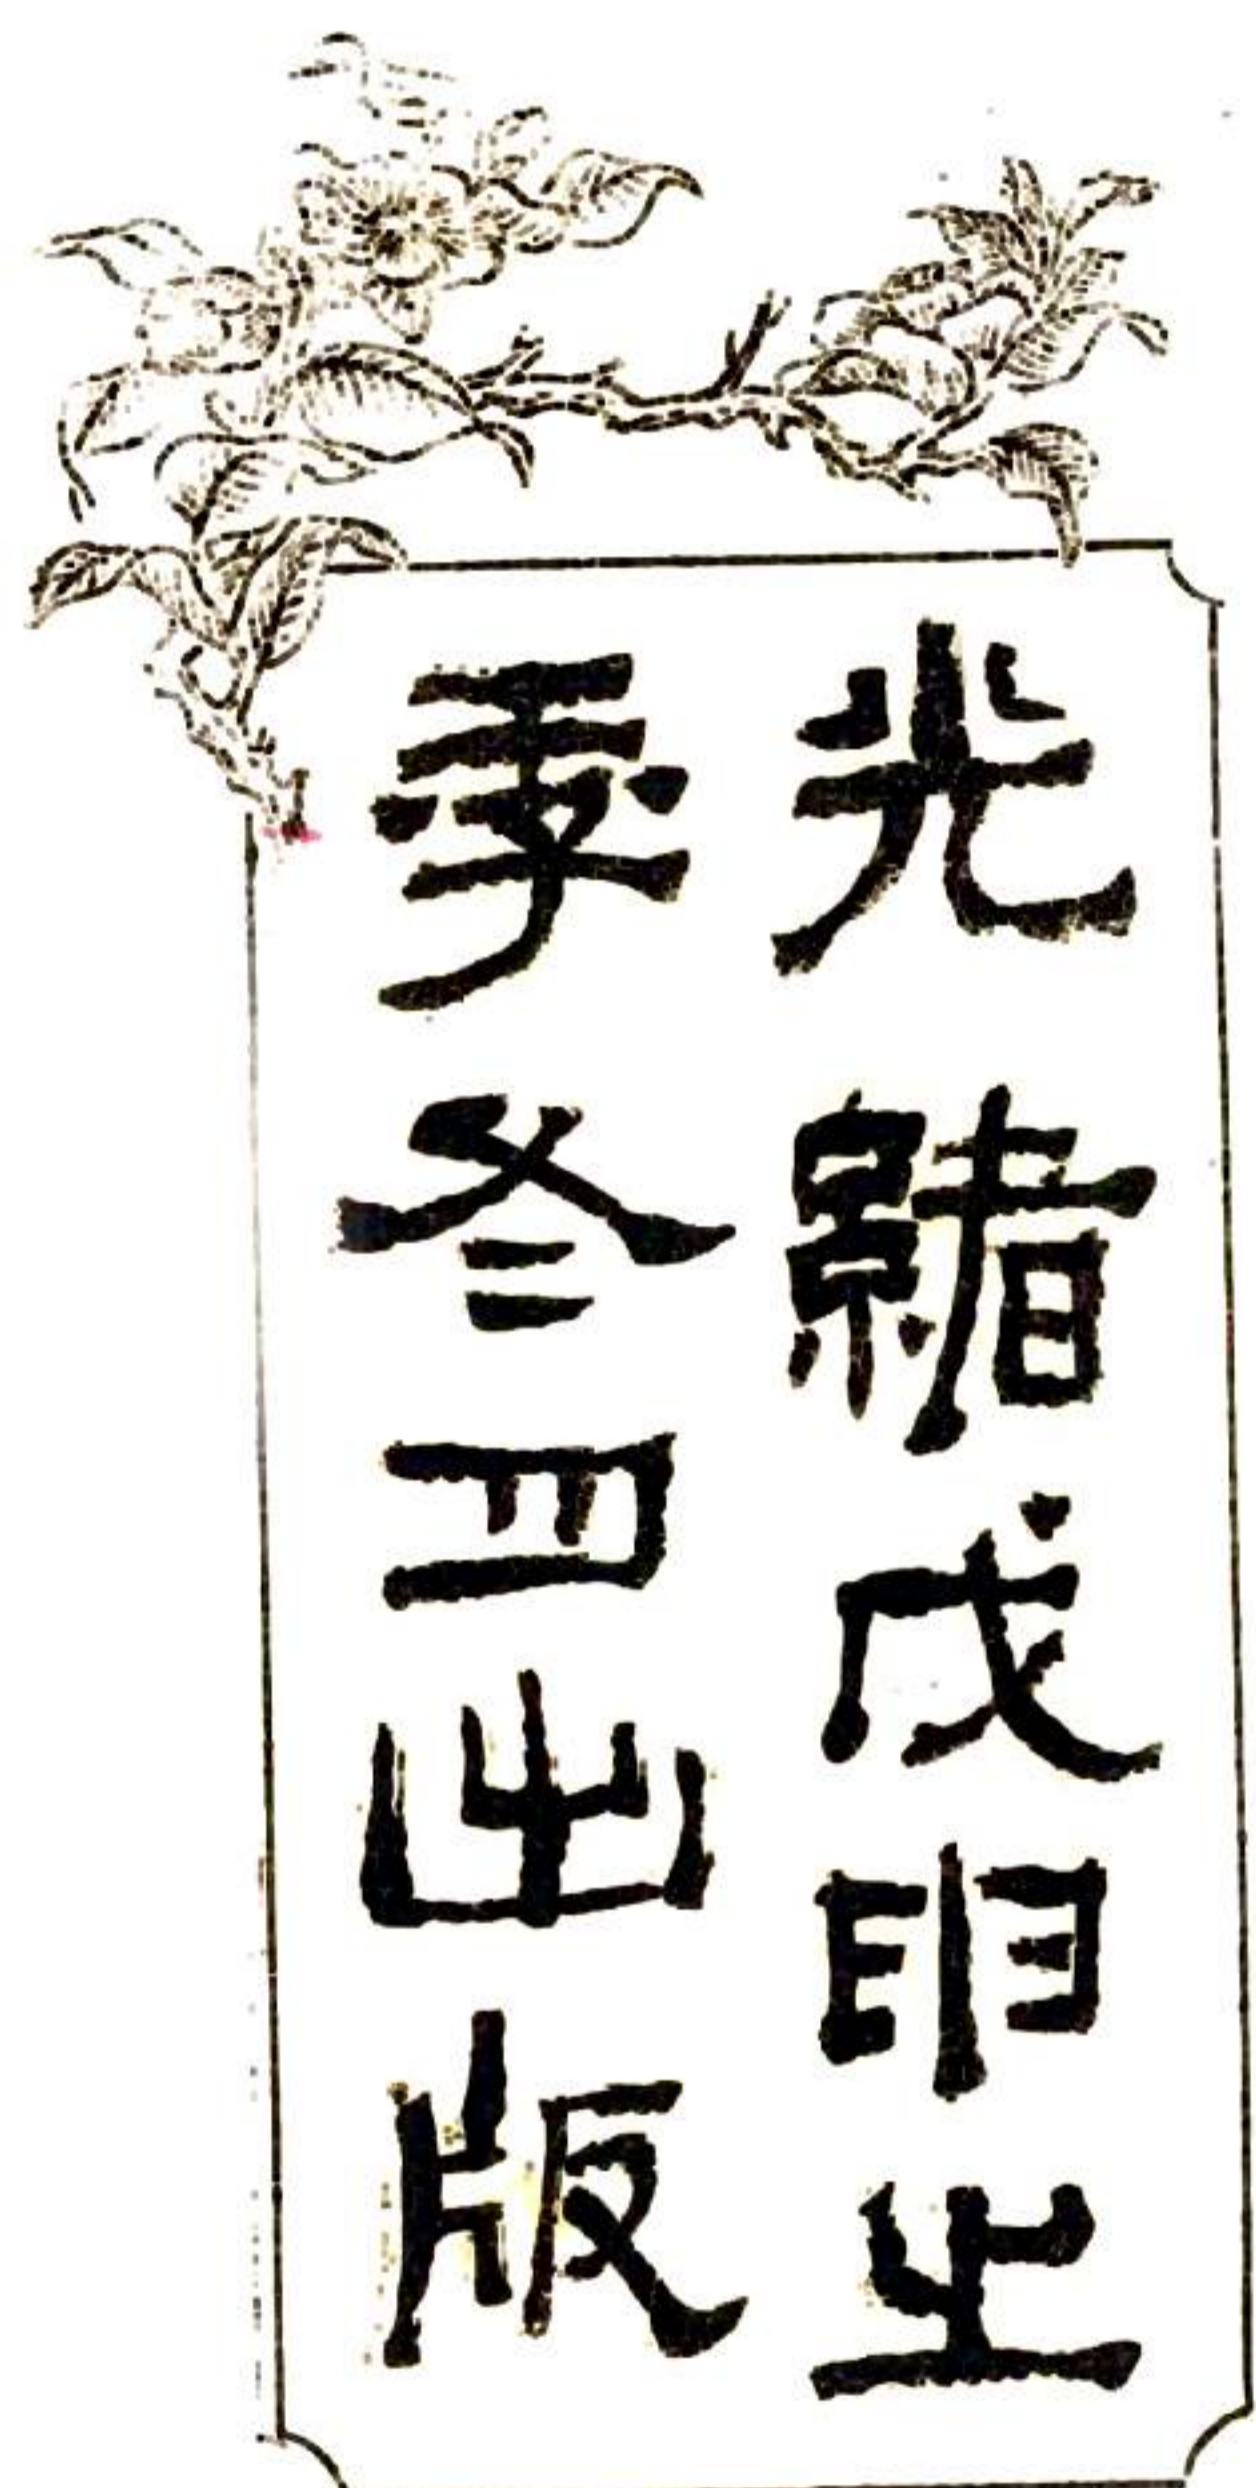 光緒戊申之
季冬月出版